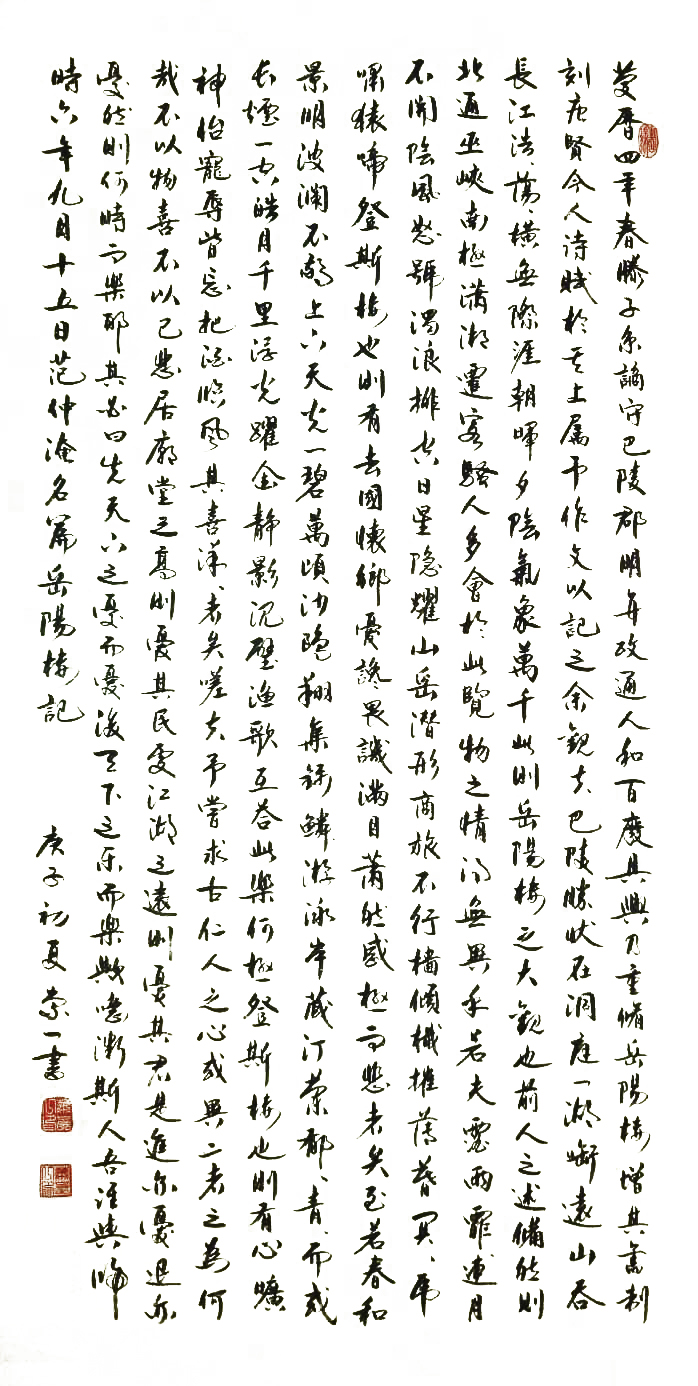 慶曆四年春滕子京謫守巴陵郡明年政通人和百廢具興乃重脩岳陽樓增其舊制
刻唐賢今人詩賦於其上屬予作文以記之余觀夫巴陵勝狀在洞庭一湖銜遠山吞
長江浩、蕩、橫無際涯朝暉夕陰氣象萬千此則岳陽樓之大觀也前人之述備然則
北通巫峽南極瀟湘遷客騷人多會於此覽物之情得無異乎若夫霪雨霏連月
不開陰風怒號濁浪排空日星隱耀山岳潛形商旅不行檣傾檝摧薄暮冥、虎
嘯猿啼登斯樓也則有去國懷鄉憂讒畏譏滿目蕭然感極而悲者矣至若春和
景明波瀾不驚上下天光一碧萬頃沙鷗翔集錦鱗游泳岸汀蘭郁、青、而或
長煙一空皓月千里浮光躍金靜影沉璧漁歌互答此樂何極登斯樓也則有心曠
神怡寵辱皆忘把酒臨風其喜洋、者矣嗟夫予嘗求古仁人之心或異二者之為何
哉不以物喜不以己悲居廟堂之高則憂其民處江湖之遠則憂其君是進亦憂退亦
憂然則何時而樂耶其必曰先天下之憂而憂後天下之樂而樂歟噫微斯人吾誰與歸
時六年九月十五日范仲淹名篇岳陽樓記
庚子初夏崇一書